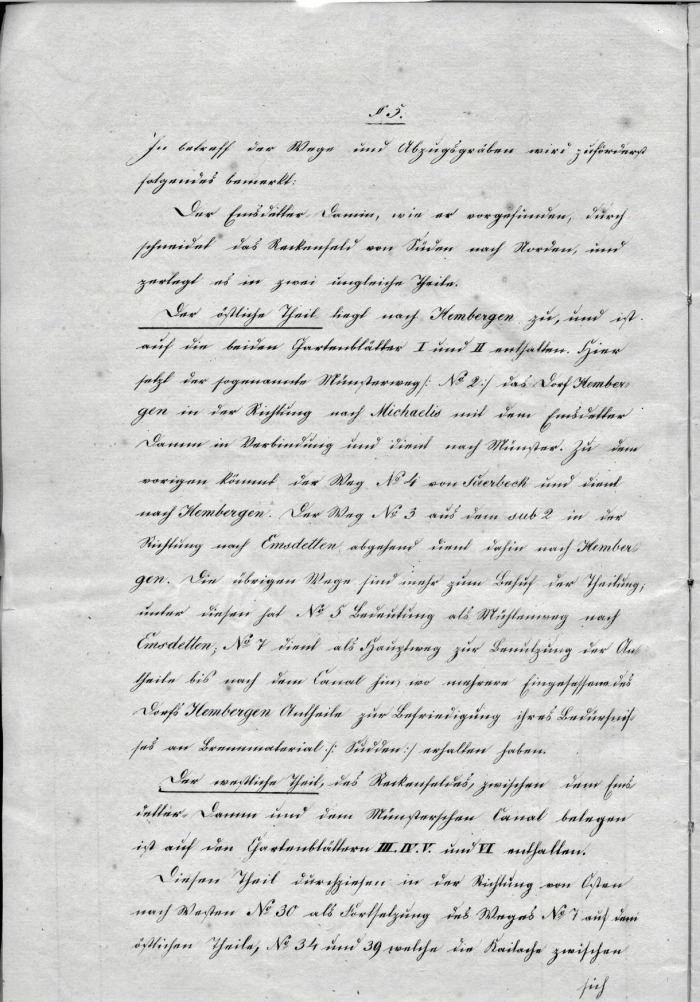 § 5.
In betreff der Wege und Abzugsgräben wird zuförderst
folgendes bemerkt:
Der Emsdetter Damm, wie er vorgefunden, durch
schneidet das Reckenfeld von Süden nach Norden, und
zerlegt es in zwei ungleiche Theile.
Der östliche Theil liegt nach Hembergen zu, und ist
auf die beiden Gartenblätter I und II enthalten. Hier
setzt der sogenannte Münsterweg /: No 2 :/ das Dorf Hember-
gen in der Richtung nach Michaelis mit dem Emsdetter
Damm in Verbindung und dient nach Münster. Zu dem
vorigen kömmt der Weg No 4 von Suerbeck und dient
nach Hembergen. Der Weg No 3 aus dem sub 2 in der
Richtung nach Emsdetten abgehend dient dahin nach Hember-
gen. Die übrigen Wege sind mehr zum Behuf der Theilung,
unter diesen hat No 5 Bedeutung als Mühlenweg nach
Emsdetten; No 7 dient als Hauptweg zur Benutzung der An-
theile bis nach dem Canal hin, wo mehrere Eingesessene des
Dorfs Hembergen Antheile zur Befriedigung ihres Bedürfnis-
ses an Brennmaterial /: Sudden :/ erhalten haben.
Der westliche Theil, des Reckenfeldes, zwischen dem Ems
detter Damm und dem Münsterschen Canal belegen
ist auf den Gartenblättern III. IV. V. und VI enthalten.
Diesen Theil durchziehen in der Richtung von Osten
nach Westen No 30 als Fortsetzung des Weges No 7 auf dem
östlichen Theile, No 34 und 39 welche die zwischen
sich